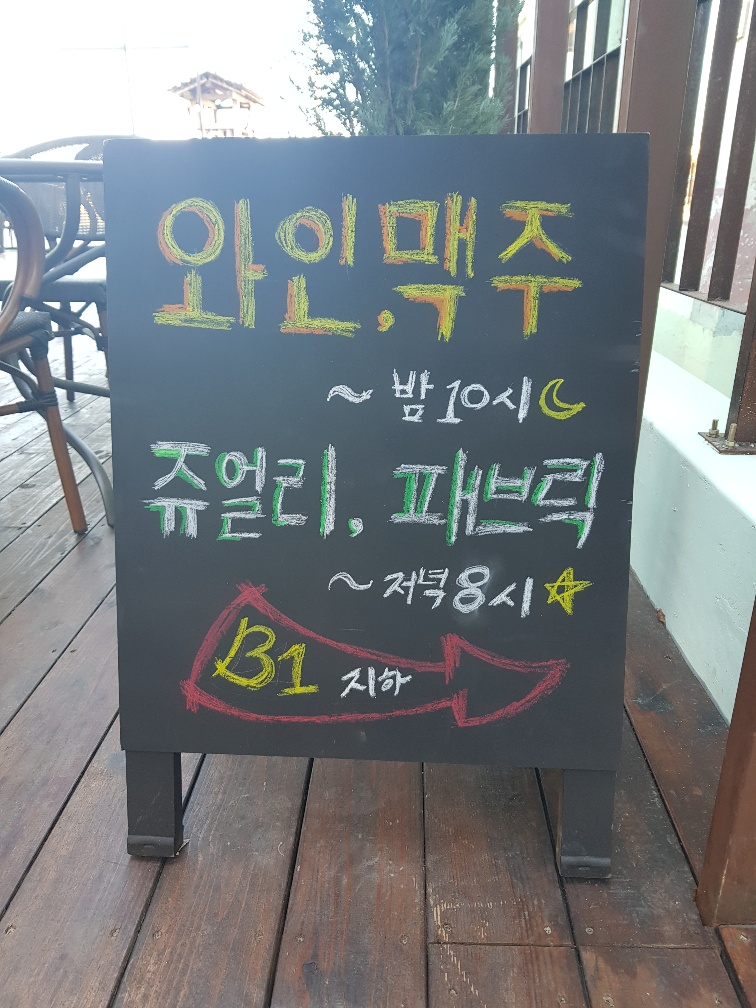 와인,맥주
~ 밤 10시
쥬얼리, 패브릭
~ 저녁 8시
B1 지하